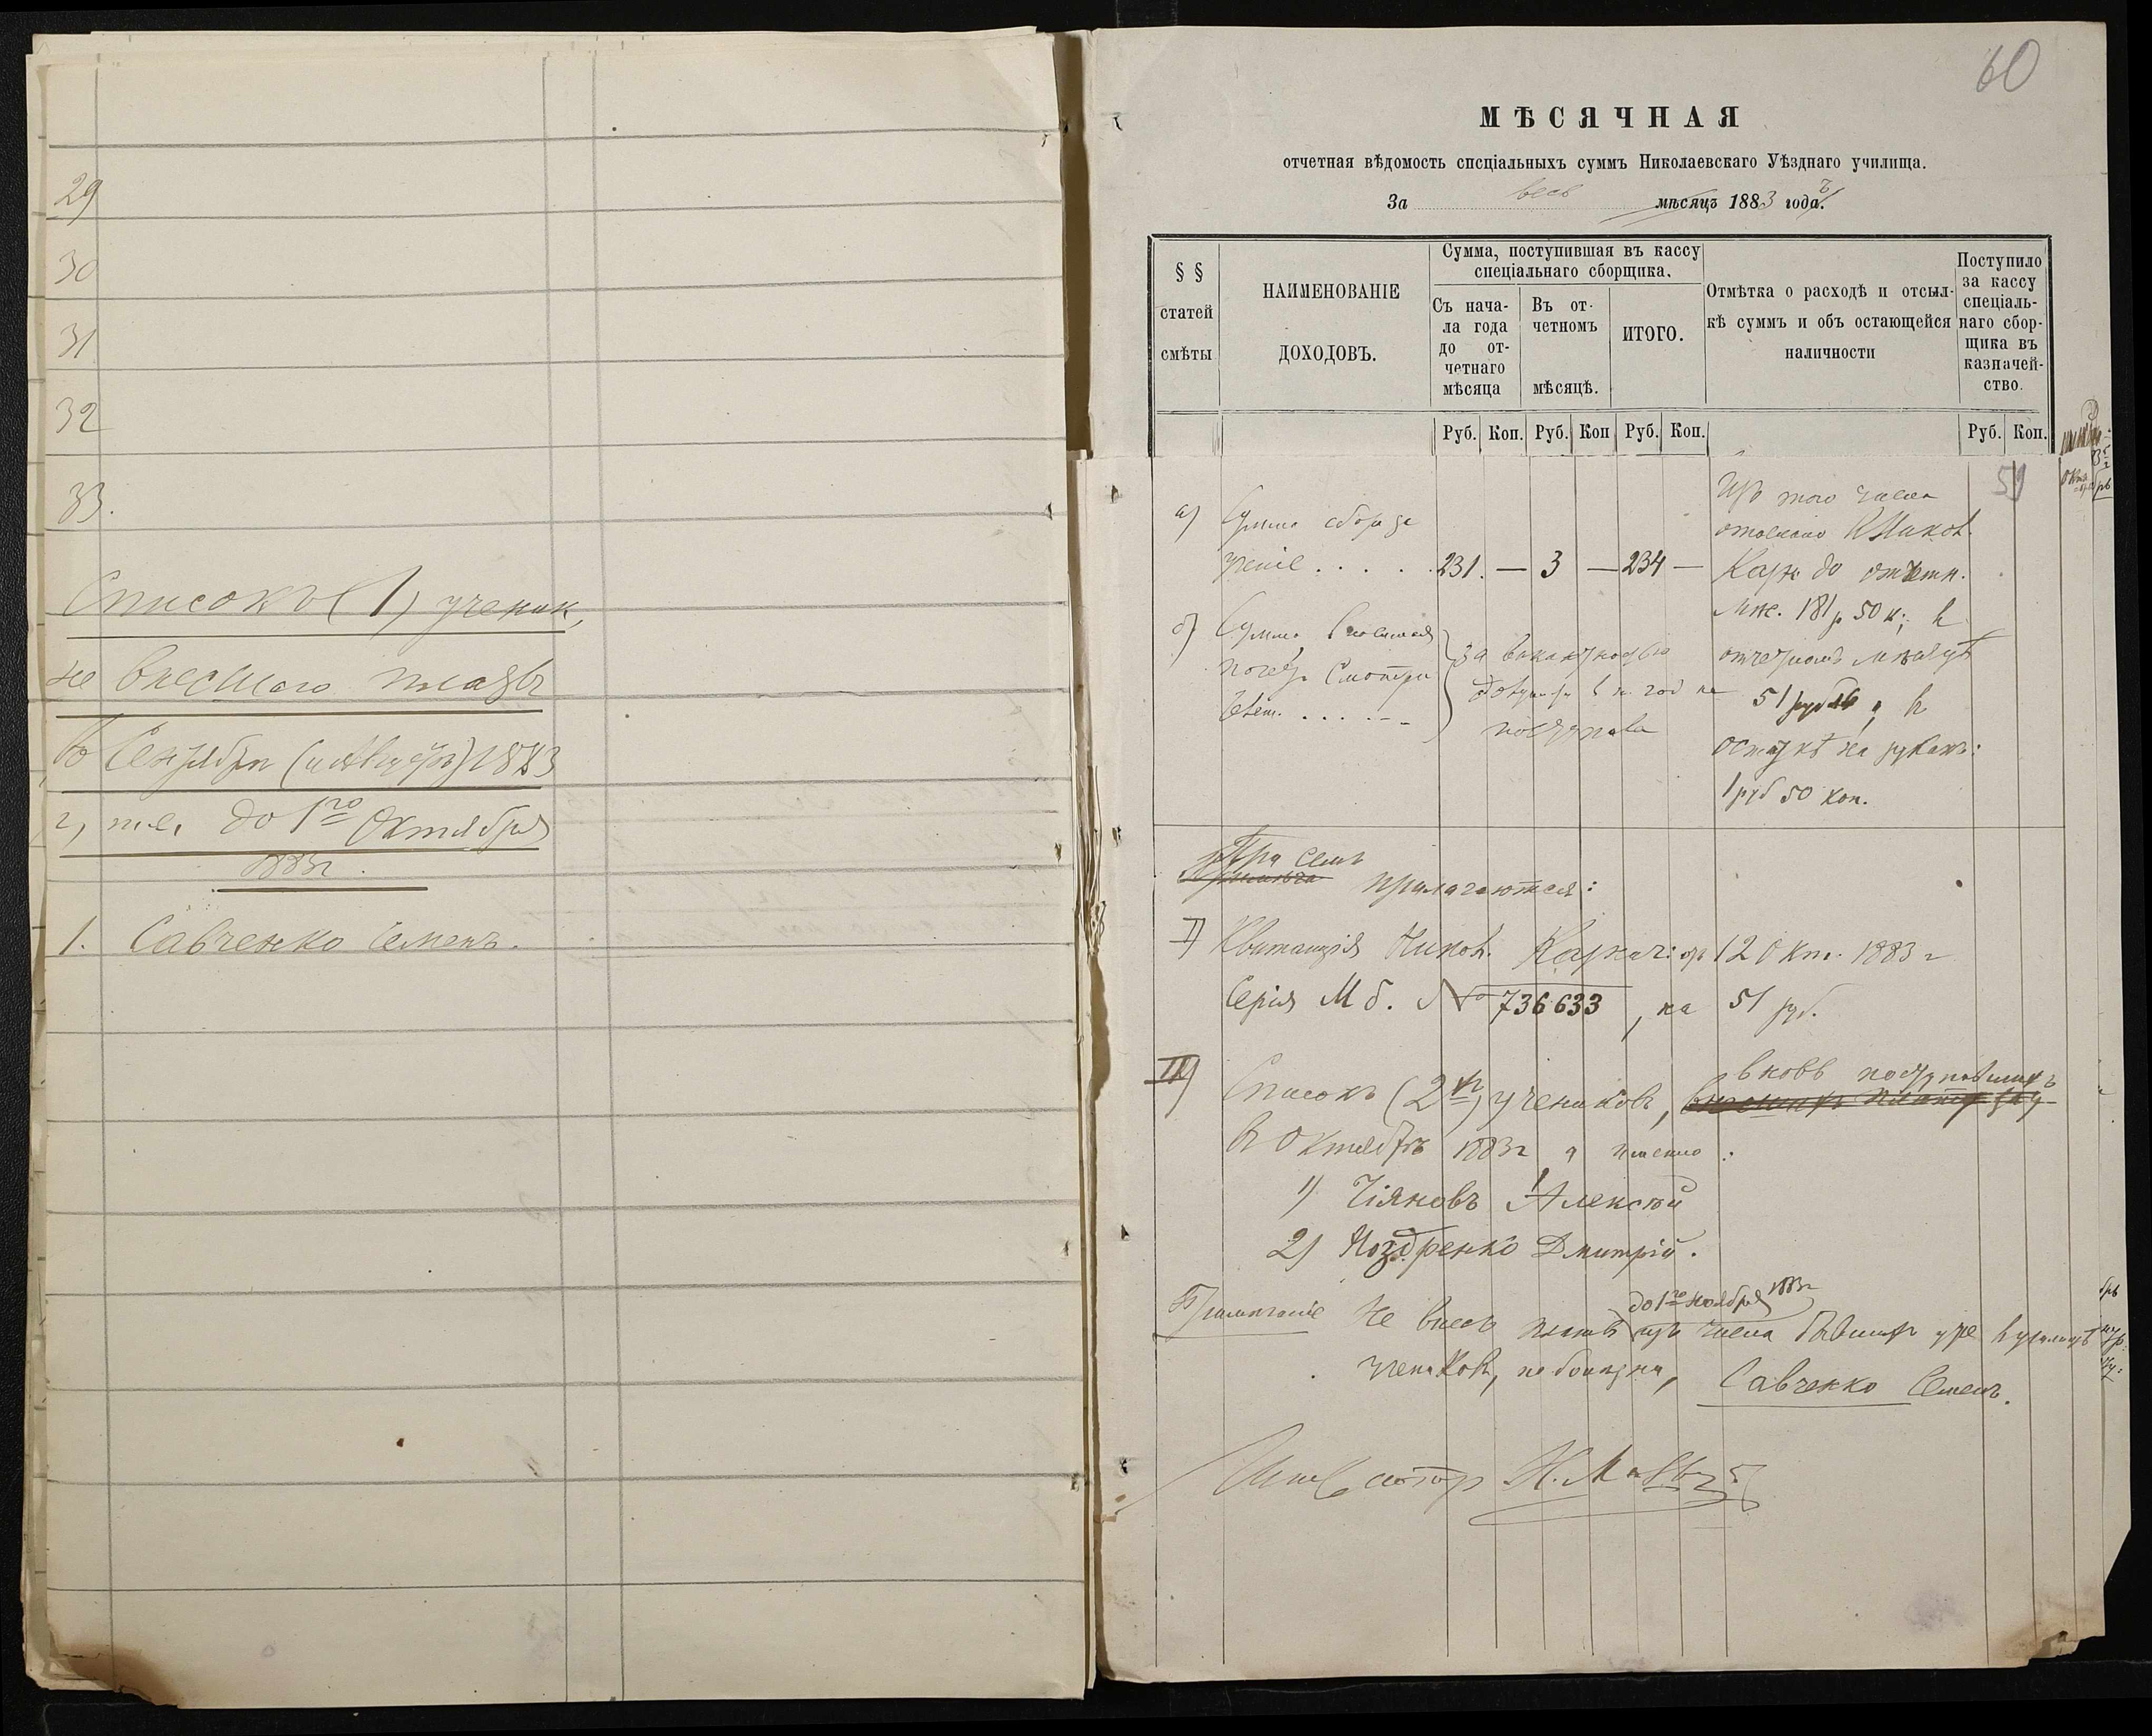 29
30
31
32
33.
Списокъ (1) ученик,
не внесшаго платы
въ Сентябрѣ (и Августѣ) 1883
г, т.е. до 1го Октября
1883г.
1. Савченко Семенъ.
60
МѢСЯЧНАЯ
отчетная вѣдомость спсціальныхъ суммъ Николаевскаго Уѣзднаго училища.
За весь мѣсяцъ 1883 года.
§ §
статей
смѣты
НАИМЕНОВАНІЕ
ДОХОДОВЪ.
Сумма, поступившая въ кассу
спеціальнаго сборщика.
Съ нача-
ла года
до от-
четнаго
мѣсяца
Въ от-
четномъ
мѣсяцѣ.
ИТОГО.
Отмѣтка о расходѣ и отсыл-
кѣ суммъ и объ остающейся
наличности
Поступило
за кассу
спеціаль-
наго сбор-
щика въ
казначей-
ство.
Руб. Коп. Руб. Коп Руб. Коп. Руб. Коп.
а) Сумма сбора за
ученіе . . . . 231. — 3 — 234 —
Изъ того числа
отослано въ Никол.
Казн до отчетн.
мѣс. 181 р 50 к., въ
отчетномъ мѣсяцѣ
51 рубль, а въ
остаткѣ на рукахъ:
1 руб 50 коп.
б) Сумма,
почет. Смотри
телем. . . . . .
за
въ год не
поступала
51
При семъ
прилагаются:
I) Квитанція Никол. Казнач: отъ 12 Окт. 1883 г
Серія М б. № 736633, на 51 руб.
II) Списокъ (2хъ) учениковъ, вновь поступившихъ
въ Октябрѣ 1883г а именно:
1) Чіяновъ Алексѣй
2) Ноздренко Дмитрій.
до 1го Ноября 1883г
Примѣчаніе Не внесъ платы изъ числа бывшихъ уже въ училищѣ
учениковъ, по болѣзни, Савченко Семенъ.